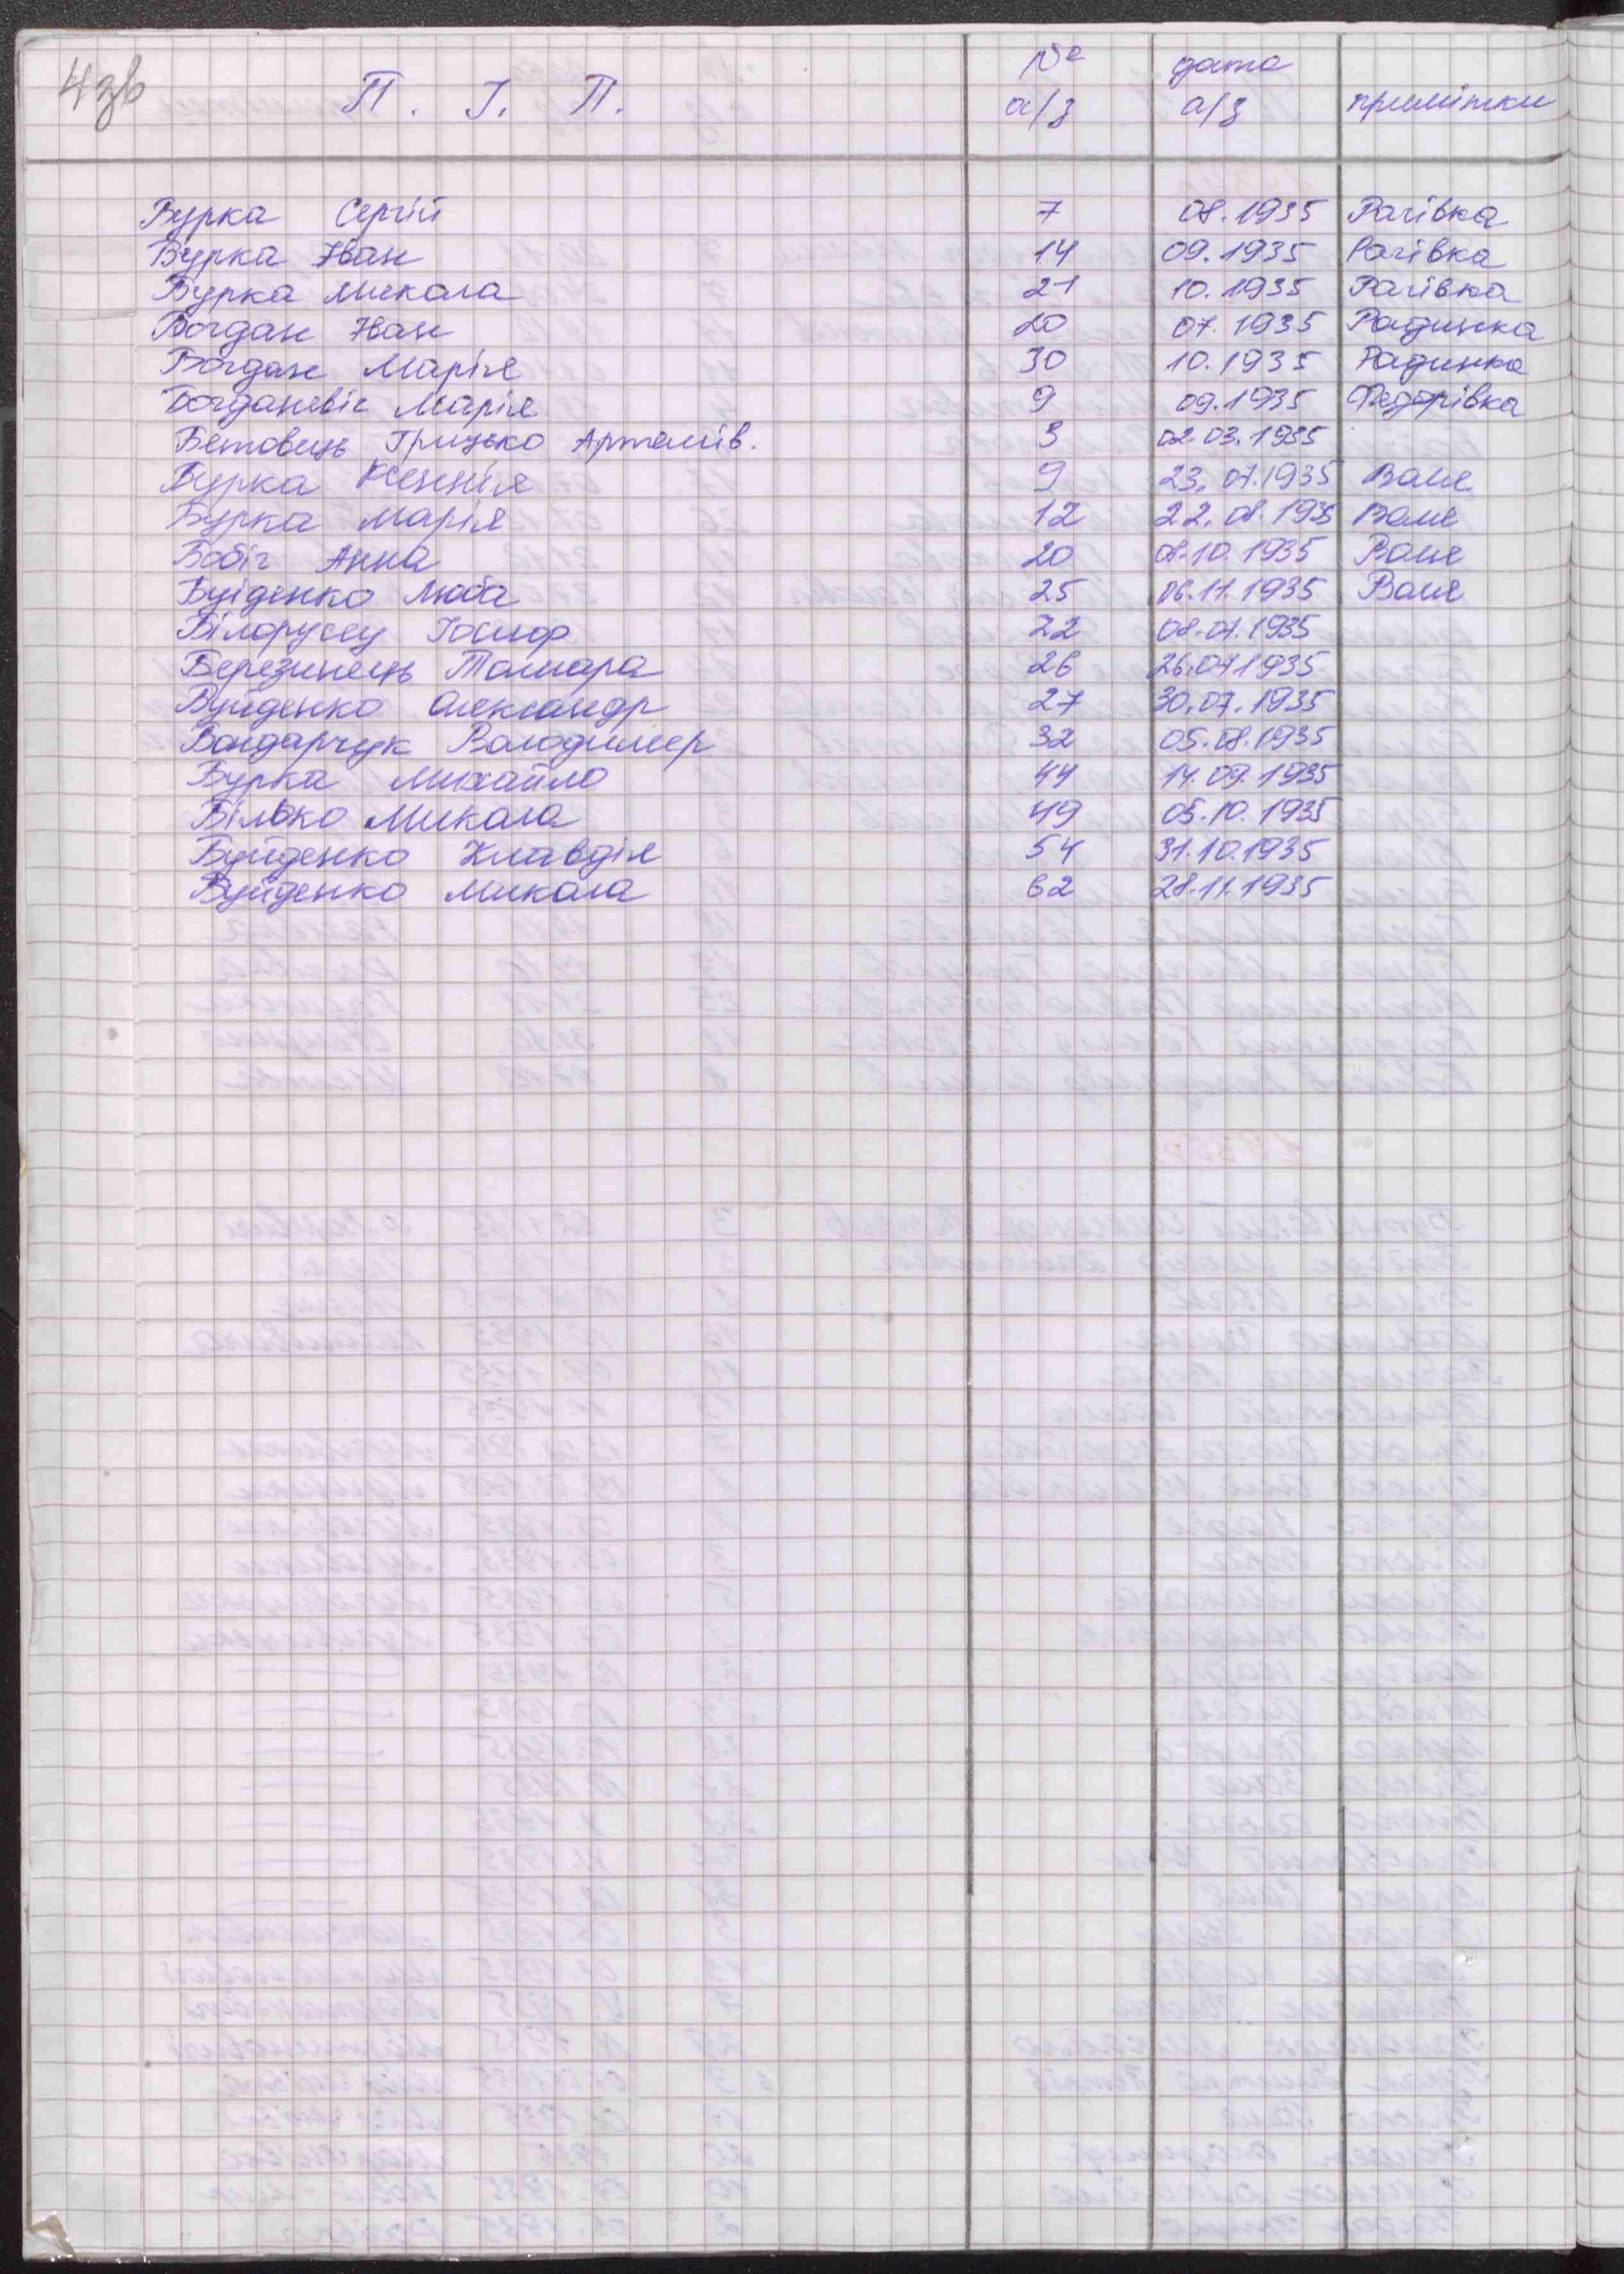 4зв
П. І. П. № а/з дата а/з примітки
Бурка Сергій 7 08.1935 Рагівка
Бурка Іван 14 09.1935 Рагівка
Бурка Микола 21 10.1935 Рагівка
Богдан Іван 20 07.1935 Радинка
Богдан Марія 30 10.1935 Радинка
Богданевіс Марія 9 09.1935 Федорівка
Бетовець Грицько Артемів. 3 02.03.1935
Бурка Ксеннія 9 23.07.1935
Бурка Марія 12 22.08.1935
Бобіч Анна 20 08.10.1935
Буіденко Люба 25 06.11.1935
Білорусец Йосип 22 08.07.1935
Березинець Тамара 26 26.07.1935
Буйденко Олександр 27 30.07.1935
Бондарчук Володимер 32 05.08.1935
Бурка Михайло 44 14.09.1935
Білько Микола 49 05.10.1935
Буйденко Клавдія 54 31.10.1935
Буйденко Микола 62 28.11.1935